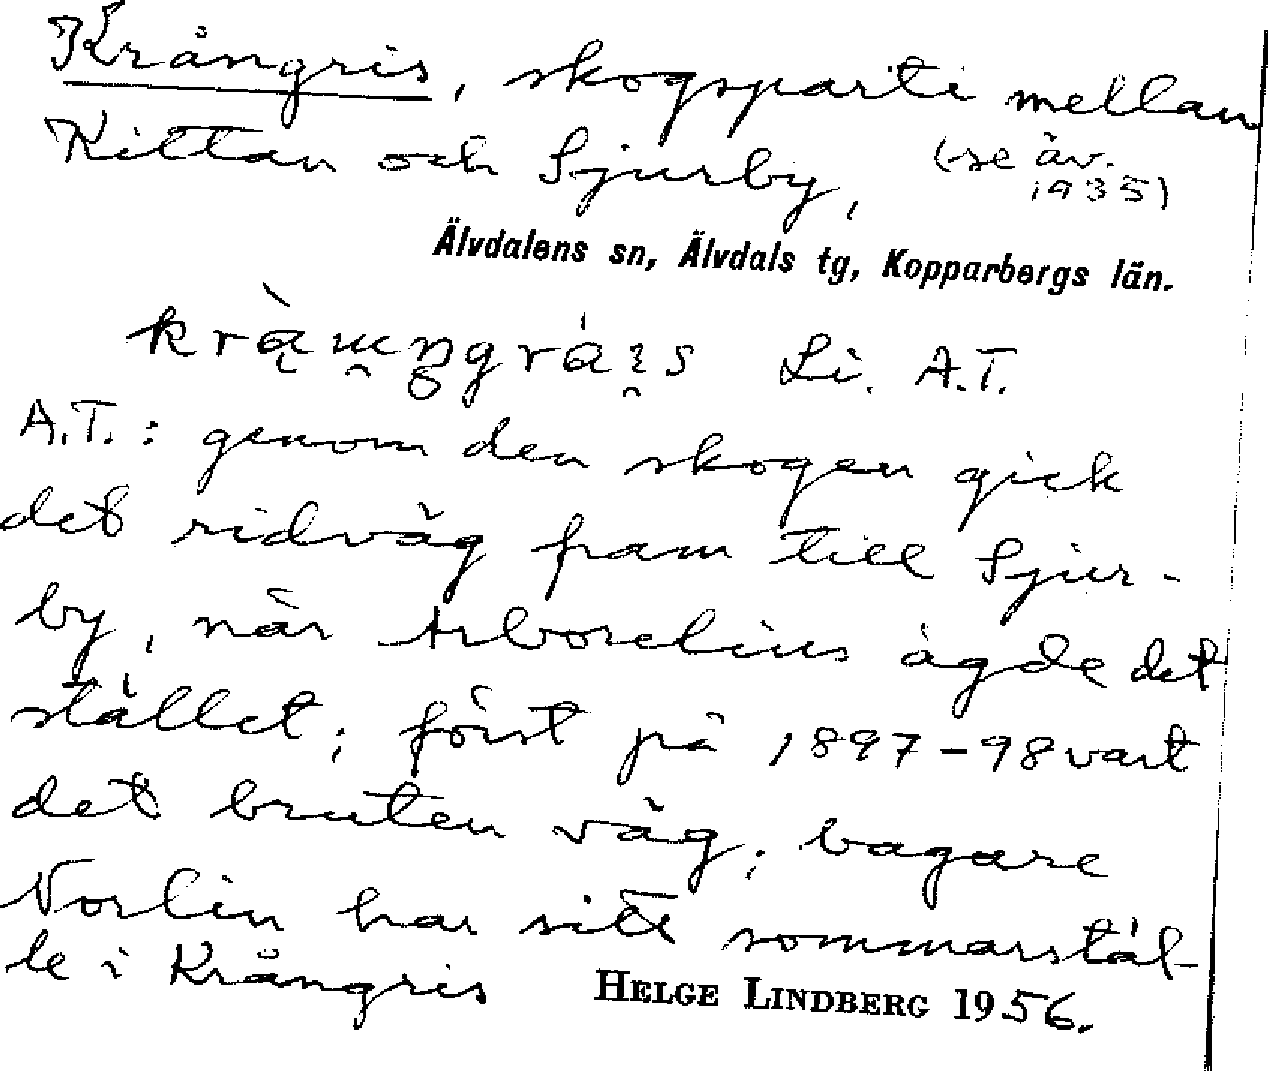 Krångris, skogsparti mellan
Kittan och Sjurby, (se äv.
1935)
Älvdalens sn, Älvdals tg, Kopparbergs län.
Li. A.T.
A.T.: genom den skogen gick
det ridväg fram till Sjur-
by, när Arborelius ägde det
stället; först på 1897-98 vart
det bruten väg; bagare
Norlin har sitt sommarstäl-
le i Krångris HELGE LINDBERG 1956.